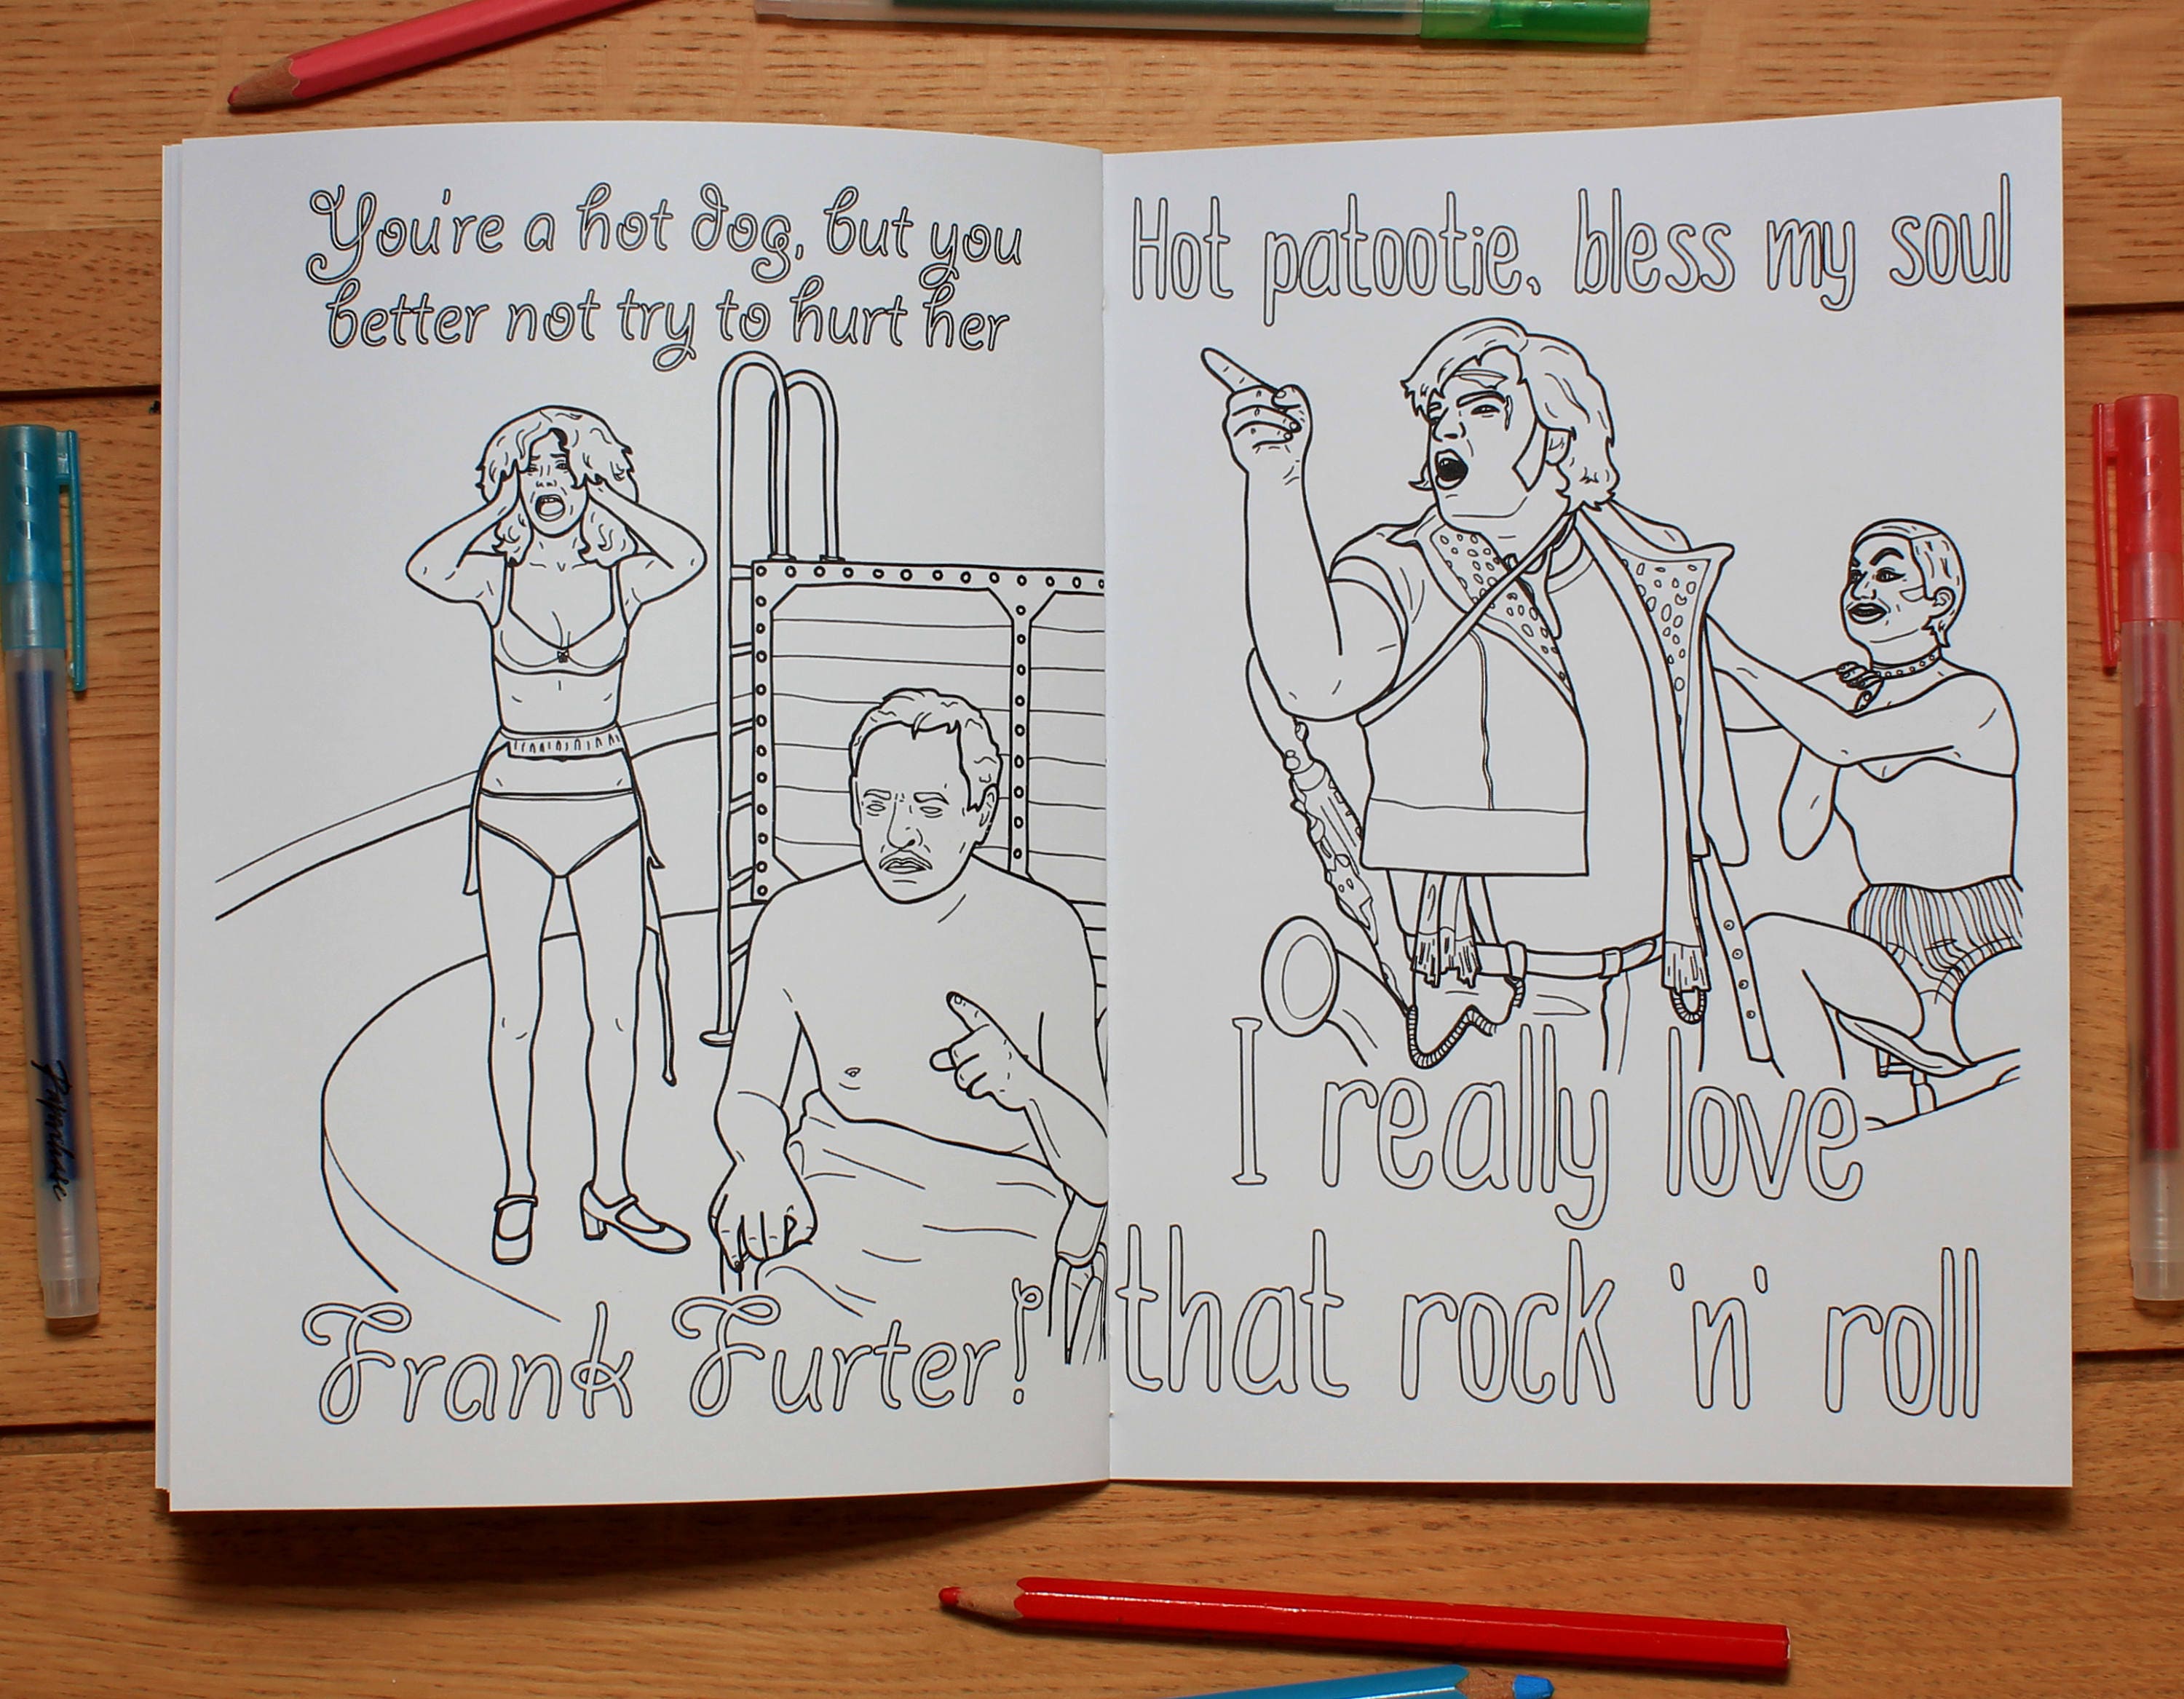 You're a hot dog, but you
better not try to hurt her
Frank Furter!
Hot patootie, bless my soul
I really love
that rock 'n' roll
Paperchase